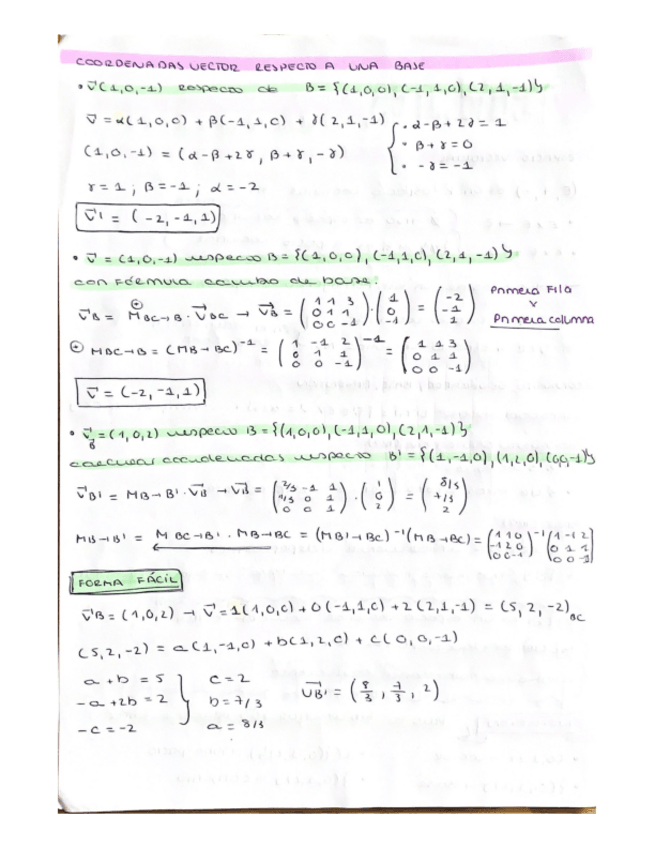 COORDENADAS VECTOR RESPECTO A UNA BASE
• v⃗(1,0,-1) respecto de B = {(1,0,0), (-1,1,0), (2,1,-1)}
v⃗ = α(1,0,0) + β(-1,1,0) + γ(2,1,-1) { • α-β+2γ = 1
(1,0,-1) = (α-β+2γ, β+γ, -γ) • β+γ=0
• -γ=-1
γ=1; β=-1; α=-2
v⃗' = (-2,-1,1)
• v⃗ = (1,0,-1) respecto B = {(1,0,0), (-1,1,0), (2,1,-1)}
con fórmula cambio de base:
v⃗B = M⊕BC→B · v⃗BC → v⃗B = (1 1 3 / 0 1 1 / 0 0 -1) · (1 / 0 / -1) = (-2 / -1 / 1) Primera Fila x Primera columna
⊕ MBC→B = (MB→BC)⁻¹ = (1 -1 2 / 0 1 1 / 0 0 -1)⁻¹ = (1 1 3 / 0 1 1 / 0 0 -1)
v⃗ = (-2,-1,1)
• v⃗B = (1,0,2) respecto B = {(1,0,0), (-1,1,0), (2,1,-1)}
calcular coordenadas respecto B' = {(1,-1,0), (1,2,0), (0,0,-1)}
v⃗B' = MB→B' · v⃗B → v⃗B = (2/3 -1 1 / 1/3 0 1 / 0 0 1) · (1 / 0 / 2) = (8/3 / 7/3 / 2)
MB→B' = MBC→B' · MB→BC = (MB'→BC)⁻¹ (MB→BC) = (1 1 0 / -1 2 0 / 0 0 -1)⁻¹ (1 -1 2 / 0 1 1 / 0 0 -1)
FORMA FÁCIL
v⃗B = (1,0,2) → v⃗ = 1(1,0,0) + 0(-1,1,0) + 2(2,1,-1) = (5,2,-2)BC
(5,2,-2) = a(1,-1,0) + b(1,2,0) + c(0,0,-1)
a+b = 5 } c = 2
-a+2b = 2 b = 7/3 v⃗B' = (8/3, 7/3, 2)
-c = -2 a = 8/3